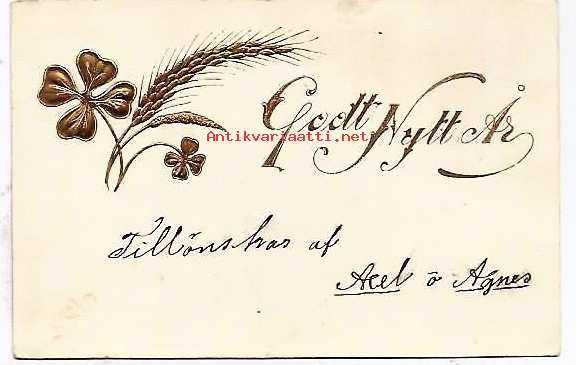 Godt Nytt År
Antikvariaatti.net
Tillönskas af
Axel o Agnes